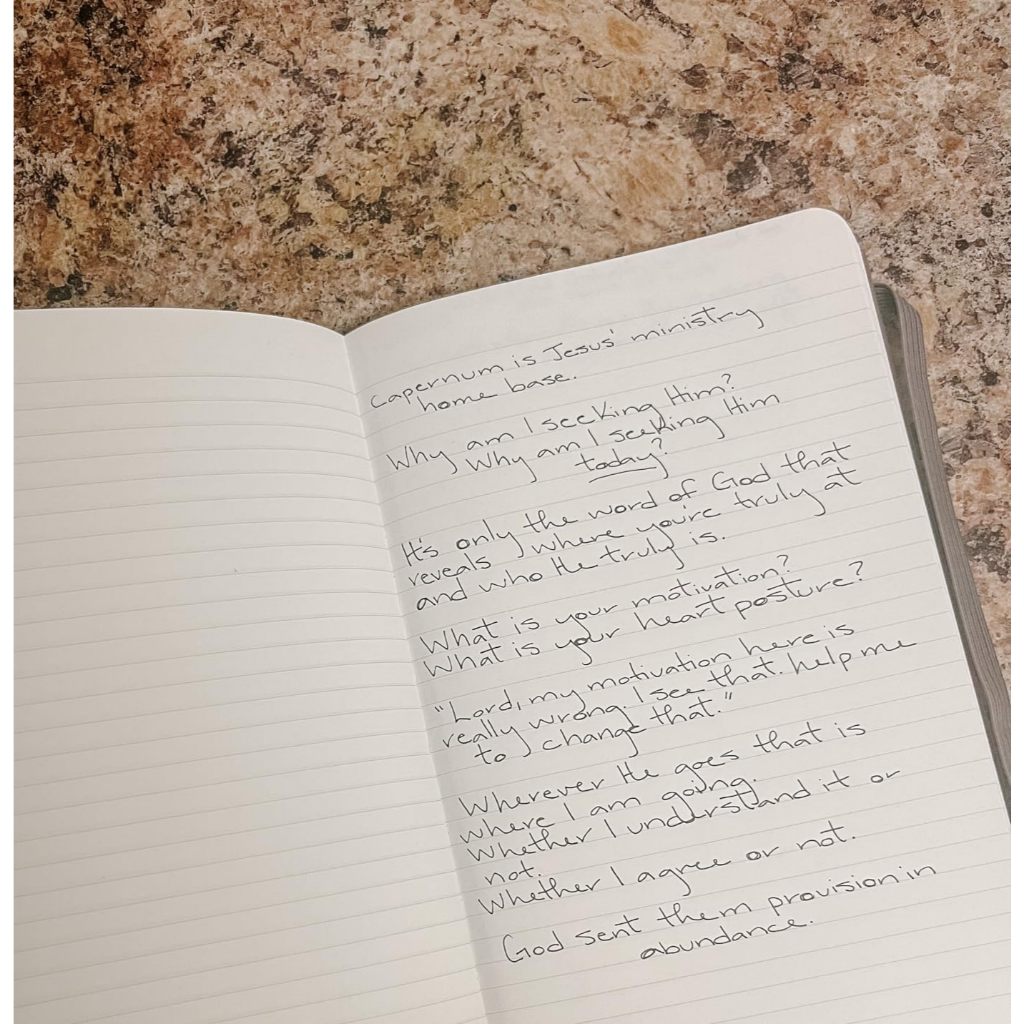 Capernum is Jesus' ministry
home base.
Why am I seeking Him?
Why am I seeking Him
today?
It's only the word of God that
reveals where you're truly at
and who He truly is.
What is your motivation?
What is your heart posture?
"Lord, my motivation here is
really wrong. I see that. help me
to change that."
Wherever He goes that is
where I am going.
Whether I understand it or
not.
Whether I agree or not.
God sent them provision in
abundance.